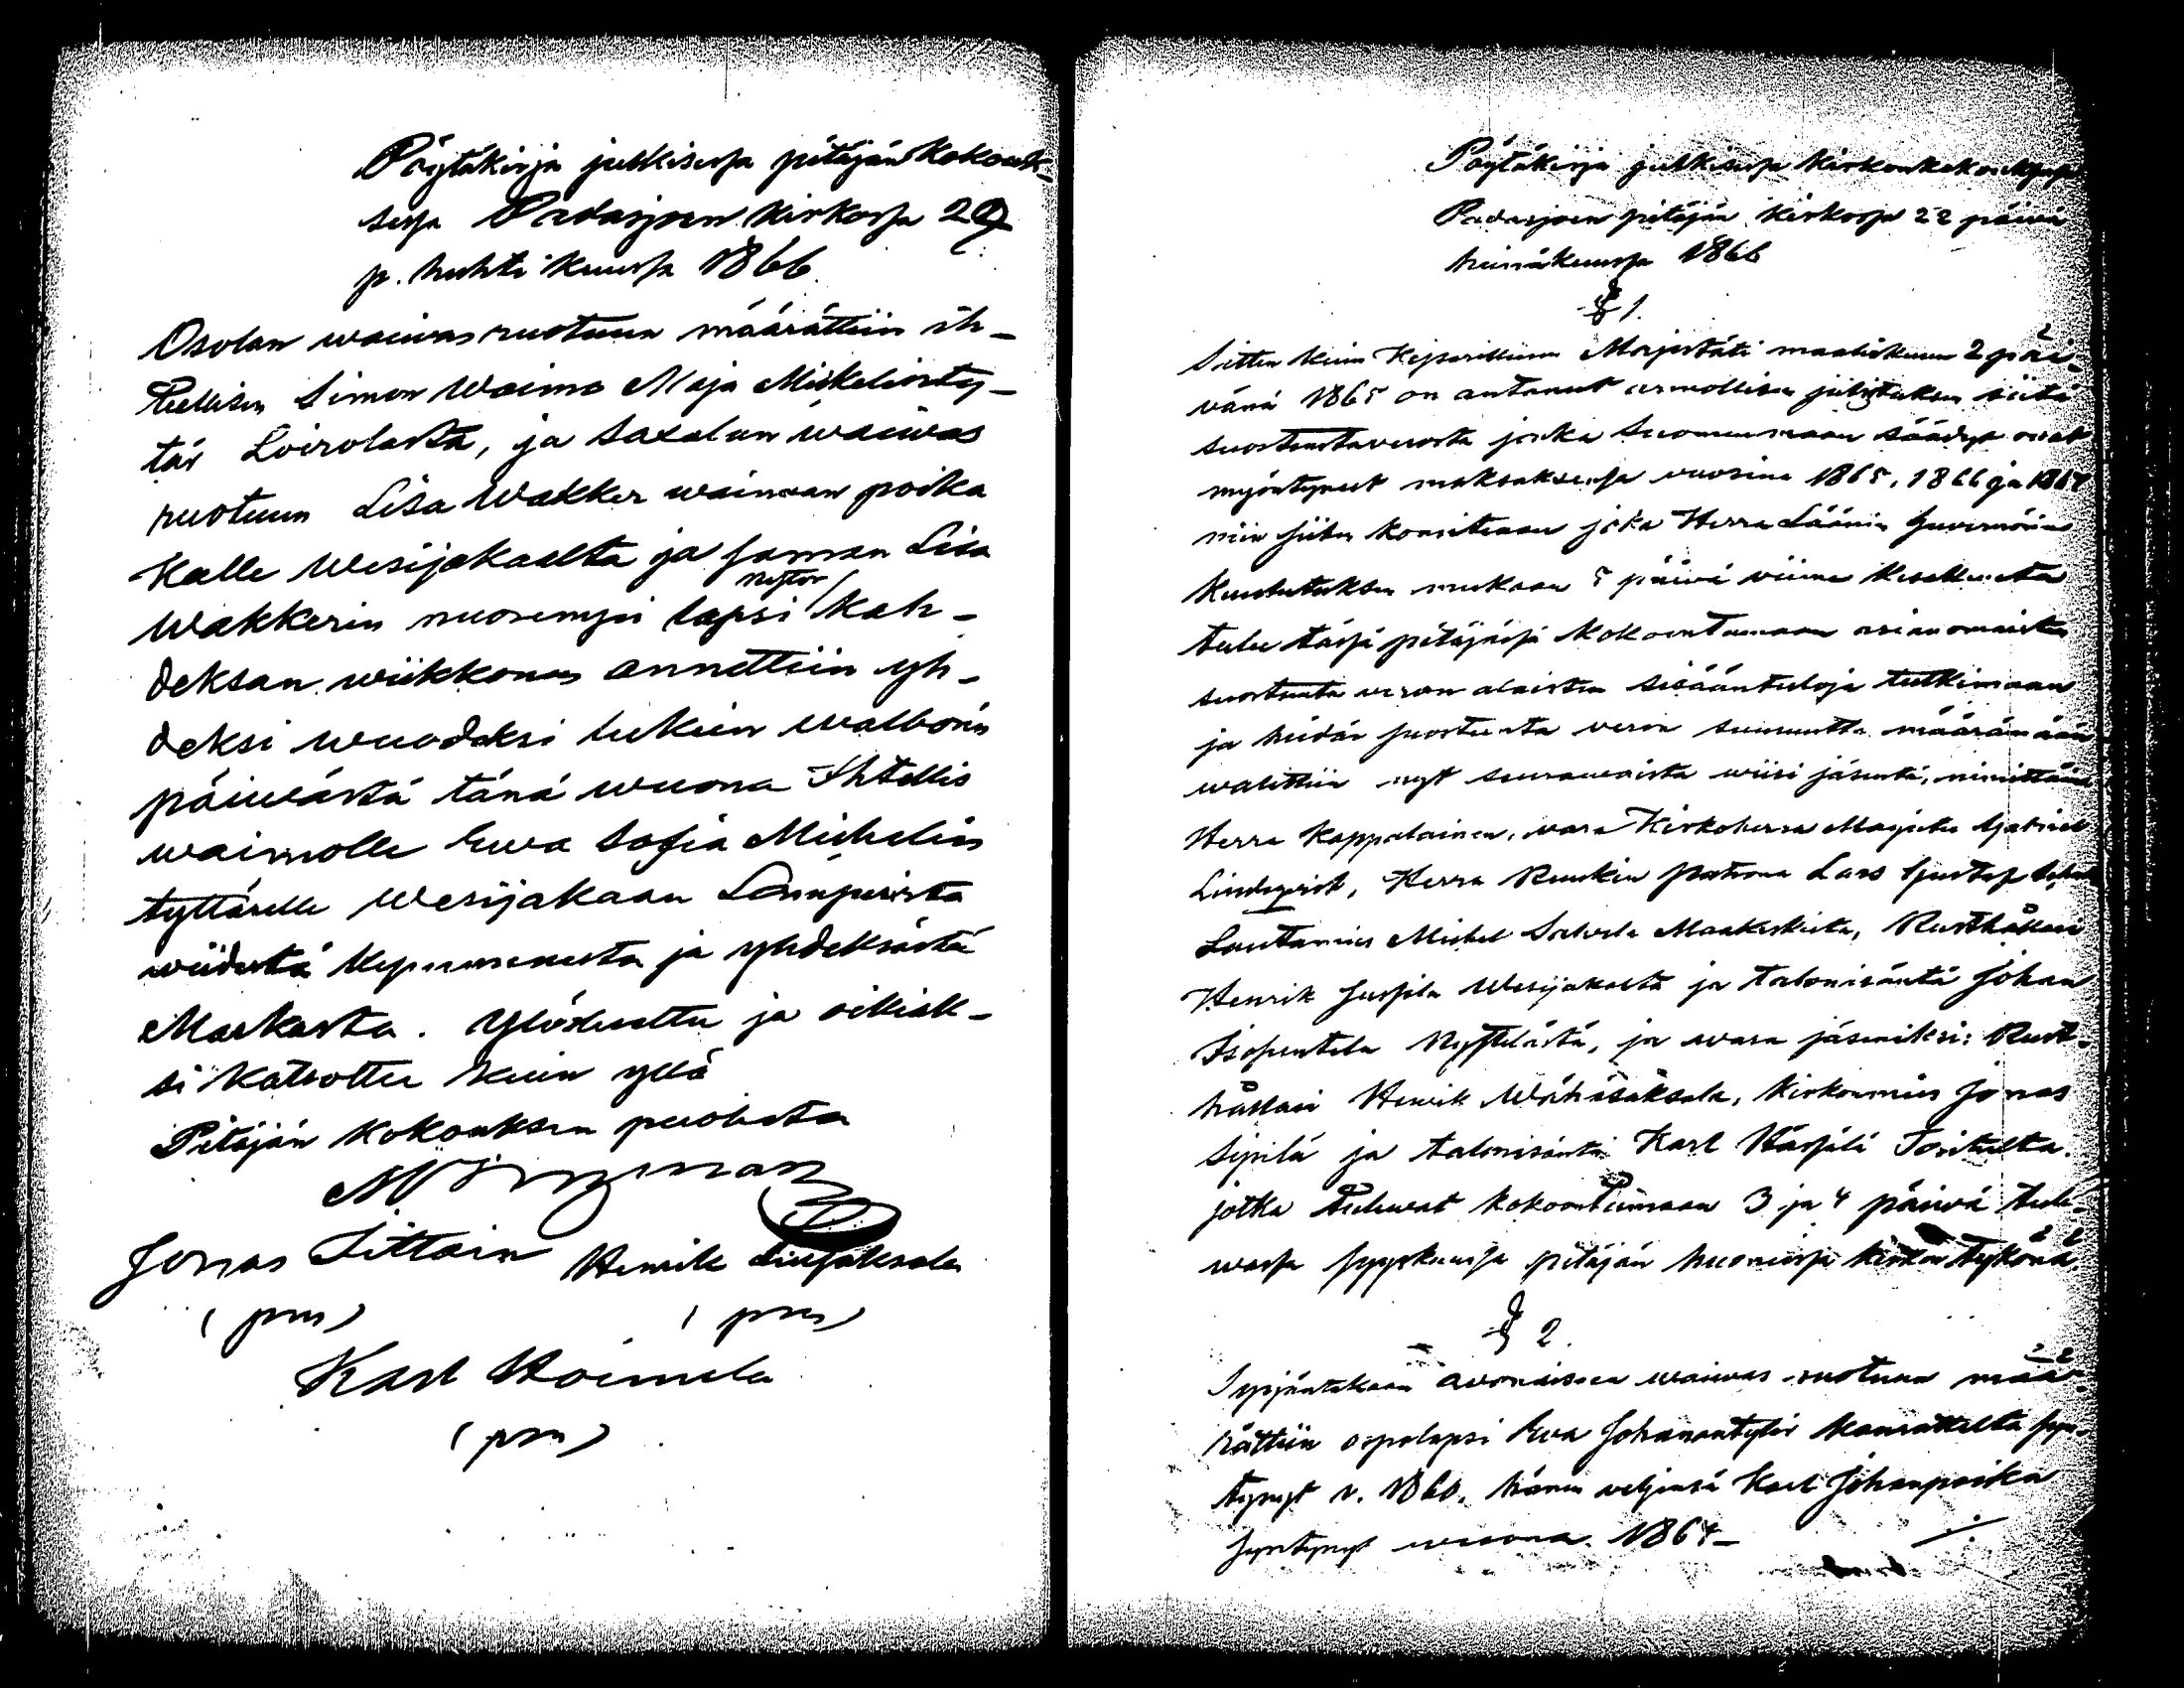 Pöytäkirja julkisessa pitäjän kokouk-
sessa Padasjoen kirkossa 29
p. huhti kuussa 1866.
Osolan waiwas ruotuun määrättiin ih-
tellisen Simon Waimo Maja Mickelintyt-
tär Loirolasta, ja Saxalan waiwas
ruotuun Lisa Wakker waimoan poika
Kalle Wesijakaalta ja saman Lisa
Wakkerin nuorempi lapsi Kah-
deksan wiikkonen annettiin yh-
deksi wuodeksi lukein walborin
päiwästä tänä wuona Ihtellis
waimolle Ewa Sofia Michelin
tyttärelle Wesijakaan
wiidestä Kapp ja yhdeksästä
Markasta. Ylösluettu ja oikiak-
si katsottu kuin yllä
Pitäjän Kokouksen puolesta
Jonas Sittain Henrik Liusaksala
(pm) (pm)
Karl Hoimela
(pm)
Pöytäkirja julkisessa Kirkonkokouksessa
Padasjoen pitäjän Kirkossa 22 päivä
heinäkuussa 1866
§ 1.
Sitten kuin Keisarillinen Majestäti maaliskuun 2 päi-
vänä 1865 on antanut armollisen julistuksen siitä
suostuntaverosta jonka Suomenmaan säädyt ovat
myöntyneet maksaksensa vuosina 1865, 1866 ja 1867
niin siihen komiteaan joka Herra Läänin Guvernörin
Kuulutuksen mukaan 5 päivä viime Kesäkuuta
tulee tässä pitäjässä kokoontumaan asianomaisten
suostunta veron alaisten sisääntuloja tutkimaan
ja heidän suostunta veron suuruutta määräämään
walittiin nyt seurawaista wiisi jäsentä, nimittäin
Herra Kappalainen, vara Kirkoherra Magister Gabriel
Lindqvist, Herra Ruukin patrona Lars Gustaf
Lautamies Michel Maakeskista, Rusthållari
Henrik Jussila Wesijakaalta ja talonisäntä Johan
Isopentola Nyystilästä, ja wara jäseniksi: Rust-
hållari Henrik Wähäsaksala, Kirkonmies Jonas
Sipilä ja talonisäntä Karl Toritulta.
jotka Tulewat kokoontumaan 3 ja 4 päivä tule-
wassa syyskuussa pitäjän huoneissa kirkon tykönä.
§ 2.
awonaiseen waiwas ruotuun mää-
rättiin orpolapsi Ewa Johanantytär syn-
tynyt v. 1860, hänen veljensä Karl Johanpoika
syntynyt wuona 1864 -